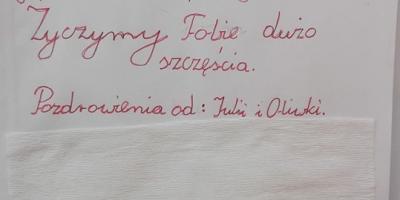 Życzymy Tobie dużo
szczęścia.
Pozdrowienia od: Julii i Oliwki.